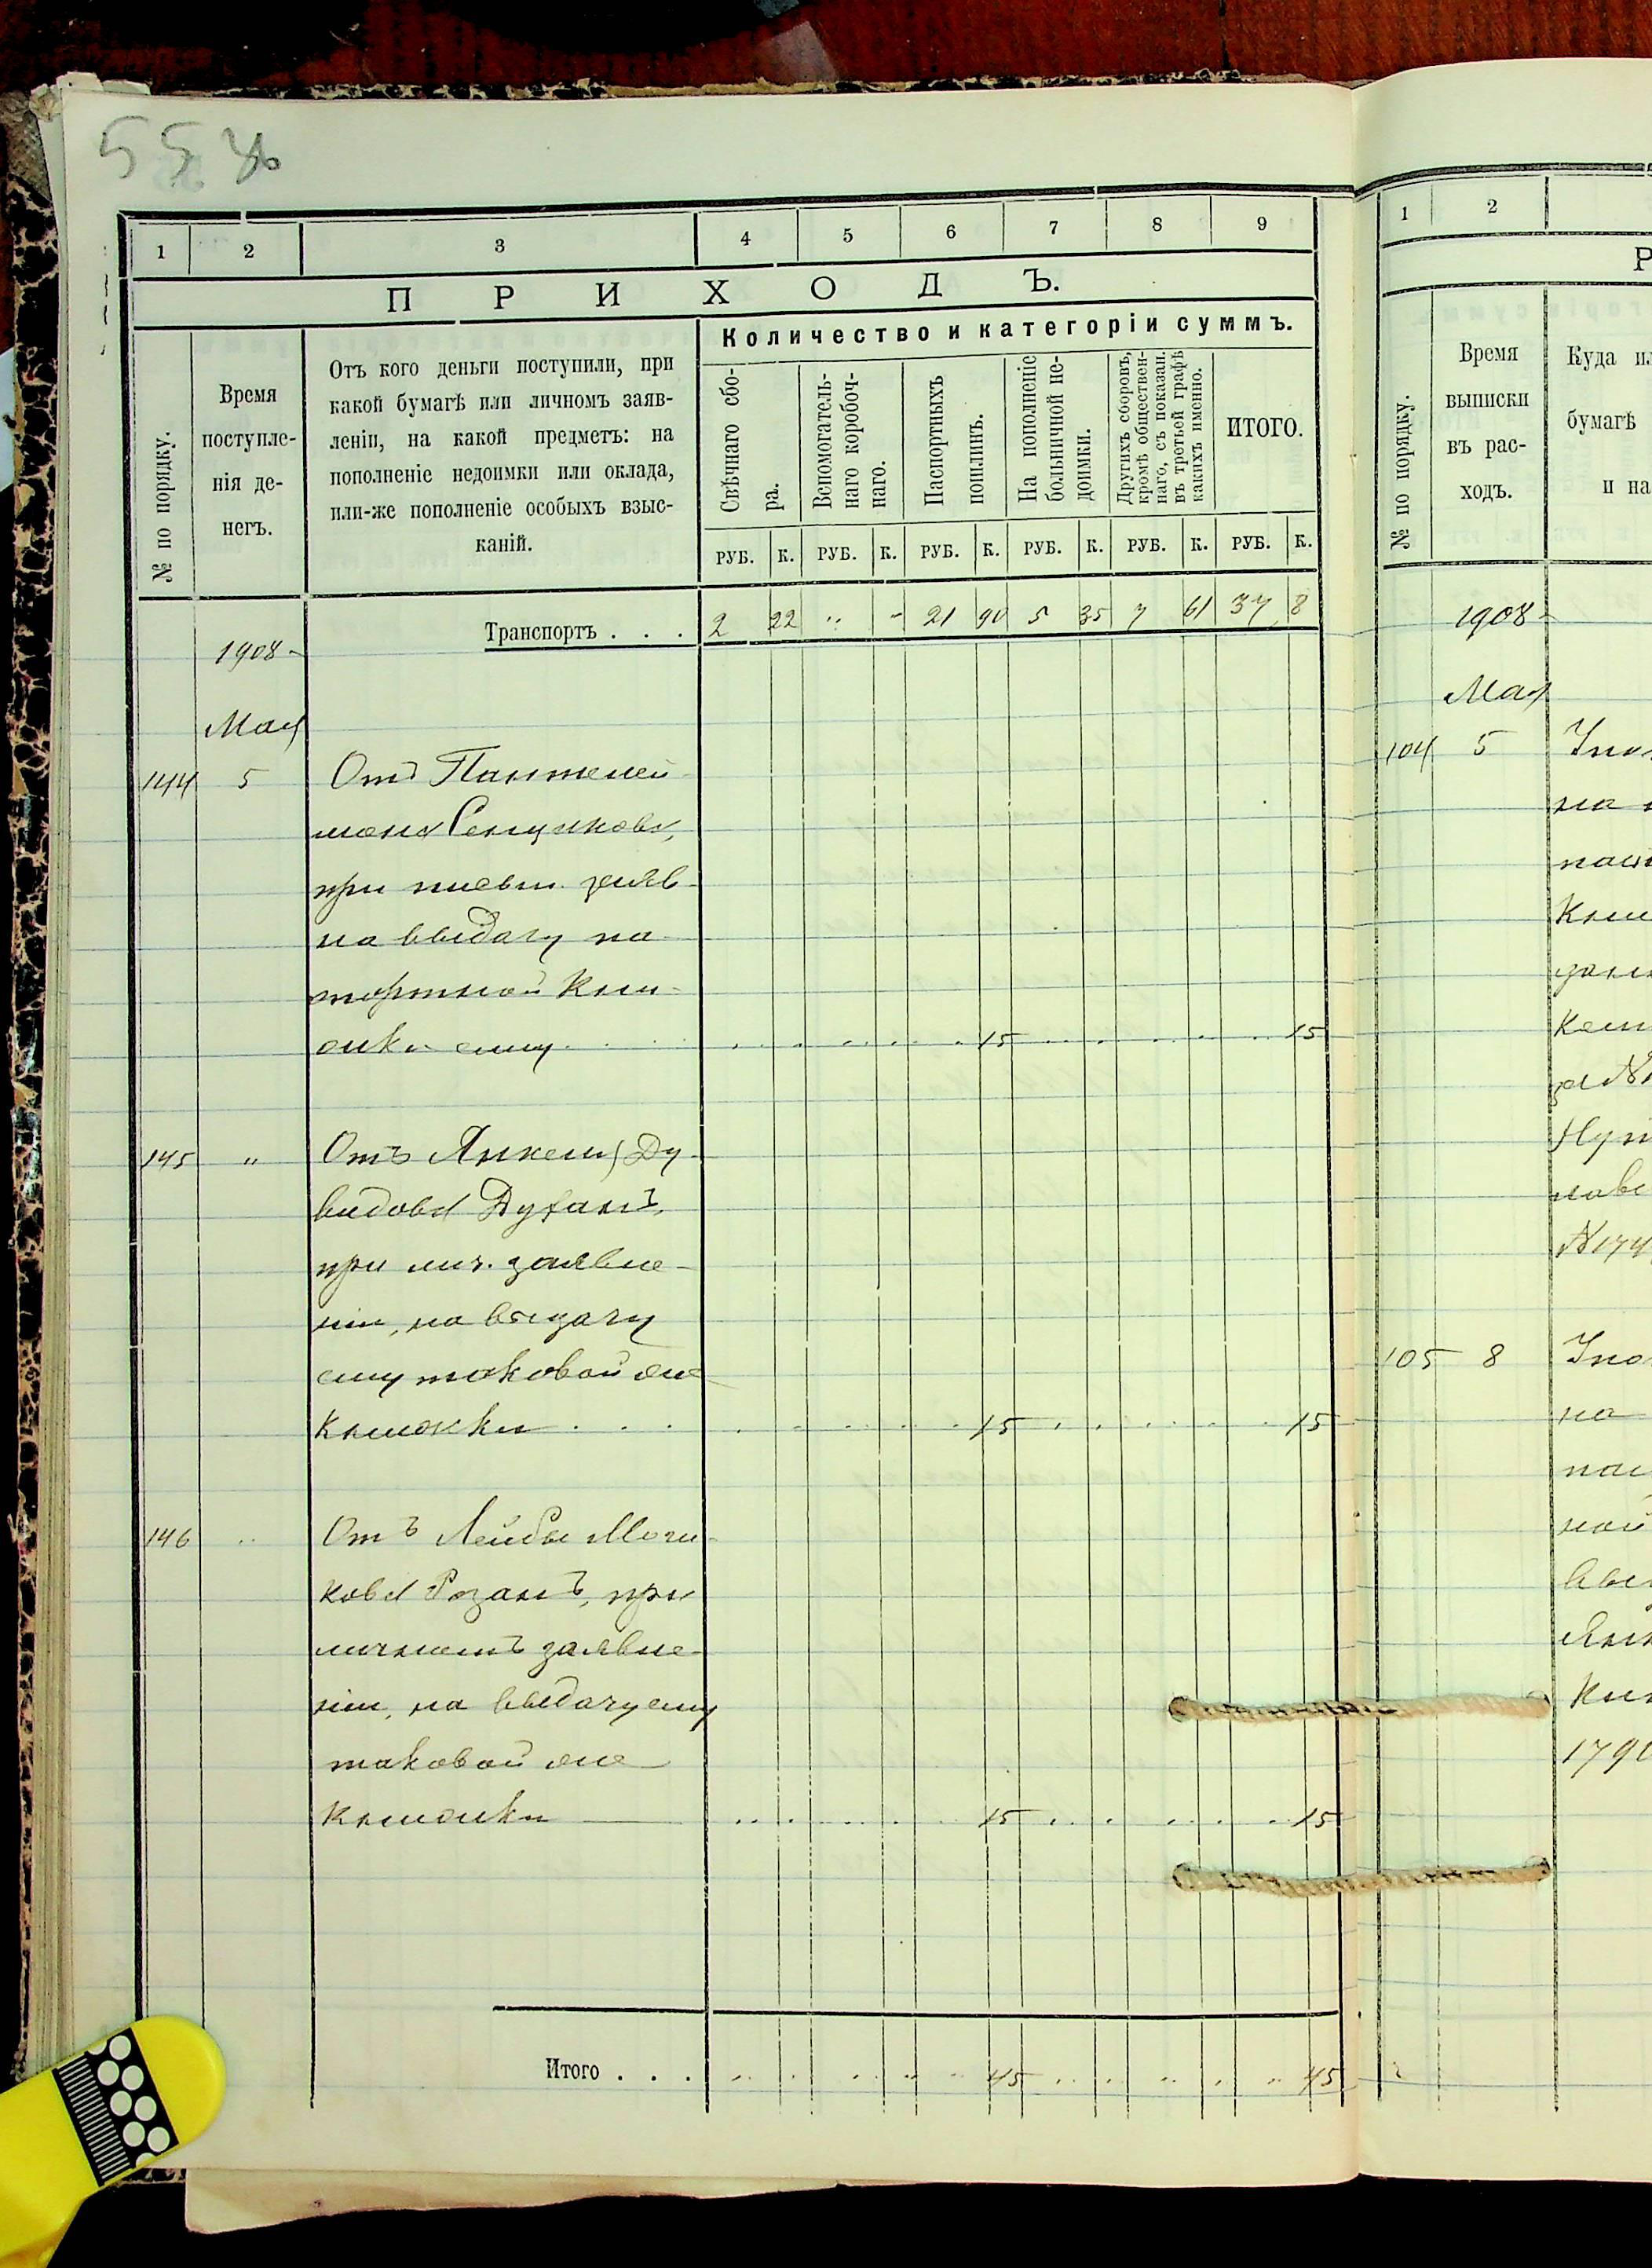 55 об
1 2 3 4 5 6 7 8 9
ПРИХОДЪ.
№ по порядку.
Время
поступле-
нія де-
негъ.
Отъ кого деньги поступили, при
какой бумагѣ или личномъ заяв-
леніи, на какой предметъ: на
пополненіе недоимки или оклада,
или-же пополненіе особыхъ взыс-
каній.
Количество и категоріи суммъ.
Свѣчнаго сбо-
ра.
Вспомогатель-
наго коробоч-
наго.
Паспортныхъ
пошлинъ.
На пополненіе
больничной не-
доимки.
Другихъ сборовъ,
кромѣ обществен-
наго, съ показан.
въ третьей графѣ
какихъ именно.
ИТОГО.
РУБ. К. РУБ. К. РУБ. К. РУБ. К. РУБ. К. РУБ. К.
Транспортъ . . . 2 22 „ - 21 90 5 35 7 61 37 8
1908
Мая
144 5 Отъ Пантелей
мона
при письм. заяв
на выдачу па
портной кни
жки ему 15 15
145 „ Отъ Янкеля Ду
видова Духанъ,
при лич. заявле-
ніи, на выдачу
ему таковой же
книжки 15 15
146 „ Отъ Лейбы
кова Розанъ, при
личномъ заявле-
ніи, на выдачу ему
таковой же
книжки 15 15
Итого . . . 45 45
1 2
Р
№ по порядку.
Время
выписки
въ рас-
ходъ.
Куда ил
бумагѣ
и на
1908
Мая
104 5
на
Кни
за №
№ 174
105 8
на
ной
Янк
Кни
179